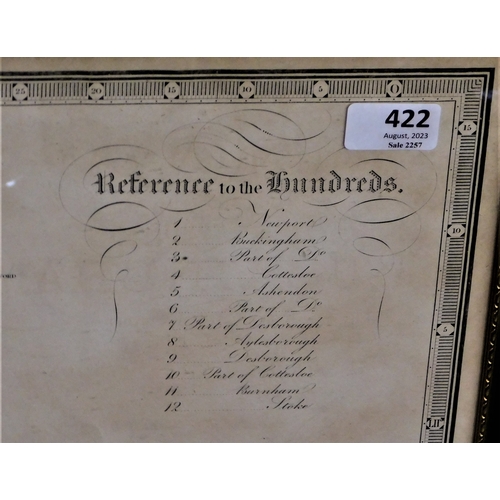 25 20 15 10 5 0
422
August, 2023
Sale 2257
15
Reference to the Hundreds.
1 Newport
2 Buckingham
3 Part of Do
4 Cottesloe
5 Ashendon
6 Part of Do
7 Part of Desborough
8 Aylesborough
9 Desborough
10 Part of Cottesloe
11 Burnham
12 Stoke
10
5